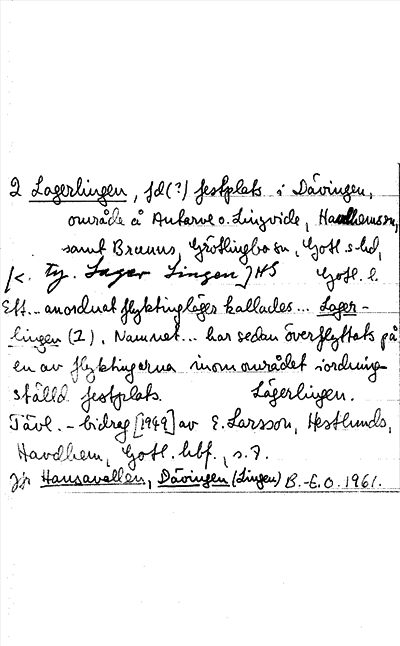 2 Lagerlingen, fd(?) festplats i Dävingen,
område å Autarve o. Lingvide, Havdhem sn,
samt Brauns, Grötlingbo sn, Gotl. s hd,
[<. ty. Lager Lingen] HS Gotl. l.
Ett... anordnat flyktingläger kallades... Lager-
lingen (I). Namnet... har sedan överflyttats på
en av flyktingarna inom området iordning-
ställd festplats. Lägerlingen.
Tävl.-bidrag [1949] av E. Larsson, Hestlunds,
Havdhem, Gotl. hbf., s. 7.
Jfr Hansavallen, Dävingen (Lingen) B.-E.O. 1961.